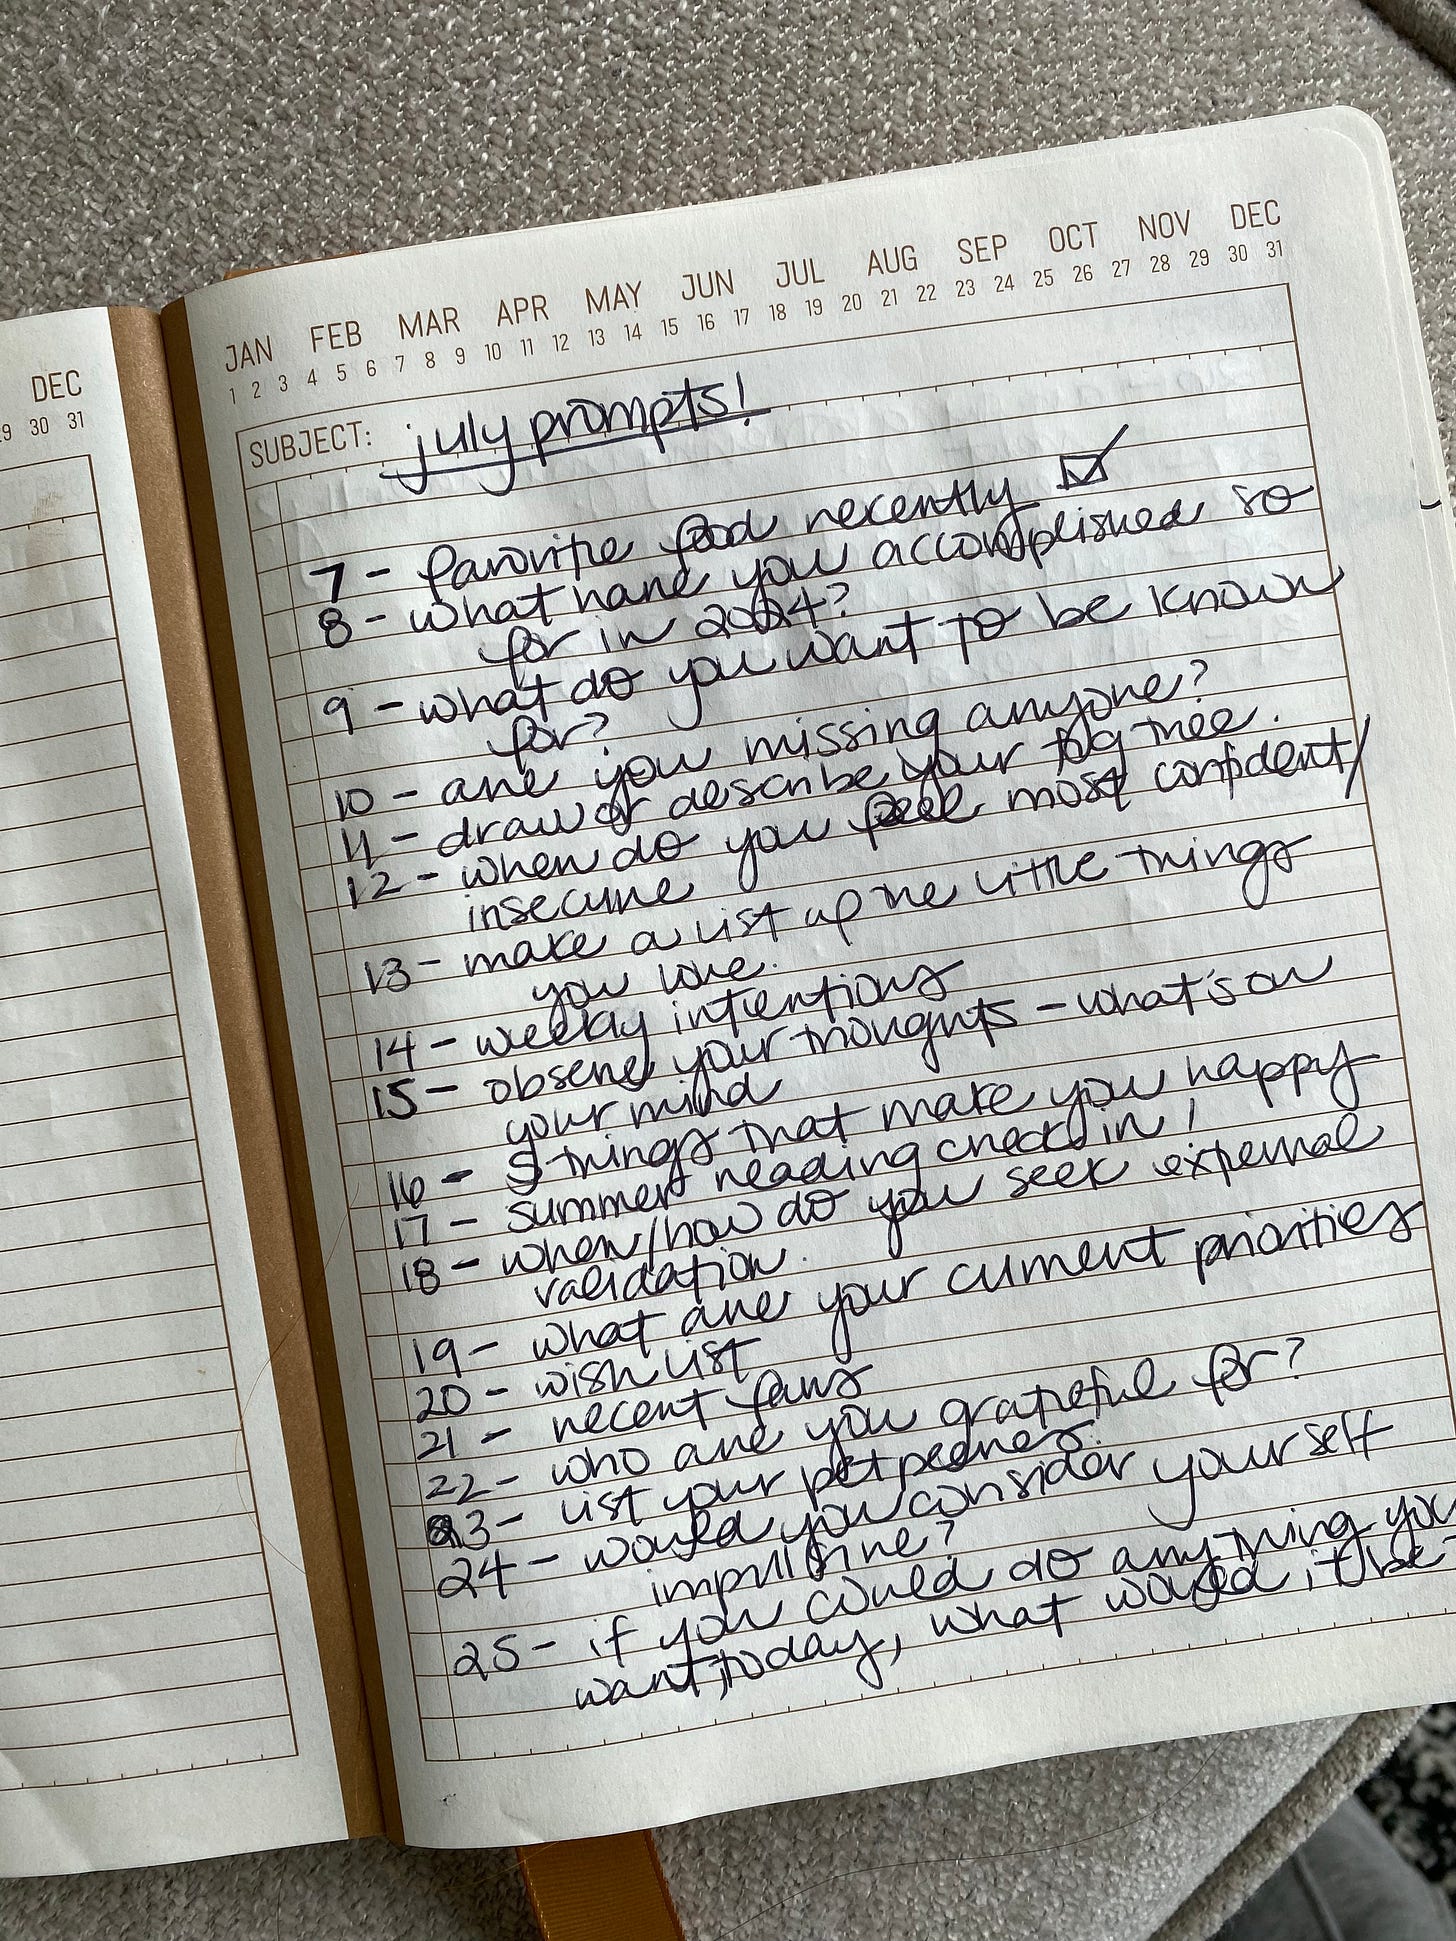 DEC
29 30 31
JAN FEB MAR APR MAY JUN JUL AUG SEP OCT NOV DEC
1 2 3 4 5 6 7 8 9 10 11 12 13 14 15 16 17 18 19 20 21 22 23 24 25 26 27 28 29 30 31
SUBJECT: july prompts!
7 - favorite food recently ☑
8 - what have you accomplished so
for in 2024?
9 - what do you want to be known
for?
10 - are you missing anyone?
11 - draw or describe your tree.
12 - when do you feel most confident/
insecure
13 - make a list of the little things
you love.
14 - weekly intentions
15 - observe your thoughts - what's on
your mind
16 - 5 things that make you happy
17 - summer reading check in!
18 - when/how do you seek external
validation.
19 - what are your current priorities
20 - wish list
21 - recent favs
22 - who are you grateful for?
23 - list your pet peeves.
24 - would you consider yourself
impulsive?
25 - if you could do anything you
want today, what would it be